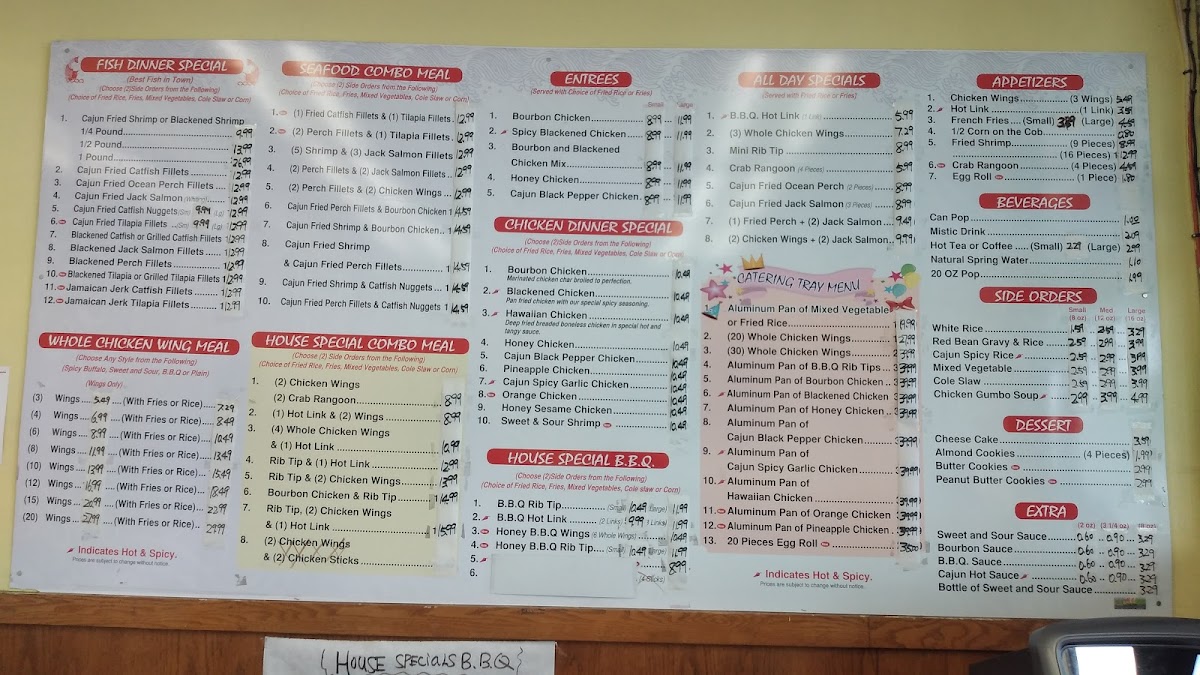 FISH DINNER SPECIAL
(Best Fish in Town)
(Choose (2)Side Orders from the Following)
(Choice of Fried Rice, Fries, Mixed Vegetables, Cole Slaw or Corn)
1. Cajun Fried Shrimp or Blackened Shrimp
1/4 Pound 9.99
1/2 Pound 13.99
1 Pound 26.99
2. Cajun Fried Catfish Fillets 12.99
3. Cajun Fried Ocean Perch Fillets 12.99
4. Cajun Fried Jack Salmon 12.99
5. Cajun Fried Catfish Nuggets (Sm) 9.99 (Lg) 12.99
6. Cajun Fried Tilapia Fillets (Sm) 9.99 (Lg) 12.99
7. Blackened Catfish or Grilled Catfish Fillets 12.99
8. Blackened Jack Salmon Fillets 12.99
9. Blackened Perch Fillets 12.99
10. Blackened Tilapia or Grilled Tilapia Fillets 12.99
11. Jamaican Jerk Catfish Fillets 12.99
12. Jamaican Jerk Tilapia Fillets 12.99
WHOLE CHICKEN WING MEAL
(Choose Any Style from the Following)
(Spicy Buffalo, Sweet and Sour, B.B.Q or Plain)
(Wings Only)
(3) Wings 5.49 (With Fries or Rice) 7.29
(4) Wings 6.99 (With Fries or Rice) 8.49
(6) Wings 8.99 (With Fries or Rice) 10.49
(8) Wings 11.99 (With Fries or Rice) 13.49
(10) Wings 13.99 (With Fries or Rice) 15.49
(12) Wings 16.99 (With Fries or Rice) 18.49
(15) Wings 20.99 (With Fries or Rice) 22.99
(20) Wings 27.99 (With Fries or Rice) 29.99
Indicates Hot & Spicy.
Prices are subject to change without notice.
SEAFOOD COMBO MEAL
(Choose (2) Side Orders from the Following)
(Choice of Fried Rice, Fries, Mixed Vegetables, Cole Slaw or Corn)
1. (1) Fried Catfish Fillets & (1) Tilapia Fillets 12.99
2. (2) Perch Fillets & (1) Tilapia Fillets 12.99
3. (5) Shrimp & (3) Jack Salmon Fillets 12.99
4. (2) Perch Fillets & (2) Jack Salmon Fillets 12.99
5. (2) Perch Fillets & (2) Chicken Wings 12.99
6. Cajun Fried Perch Fillets & Bourbon Chicken 14.59
7. Cajun Fried Shrimp & Bourbon Chicken 14.59
8. Cajun Fried Shrimp
& Cajun Fried Perch Fillets 14.59
9. Cajun Fried Shrimp & Catfish Nuggets 14.59
10. Cajun Fried Perch Fillets & Catfish Nuggets 14.59
HOUSE SPECIAL COMBO MEAL
(Choose (2) Side Orders from the Following)
(Choice of Fried Rice, Fries, Mixed Vegetables, Cole Slaw or Corn)
1. (2) Chicken Wings
(2) Crab Rangoon 8.99
2. (1) Hot Link & (2) Wings 8.99
3. (4) Whole Chicken Wings
& (1) Hot Link 10.99
4. Rib Tip & (1) Hot Link 12.99
5. Rib Tip & (2) Chicken Wings 13.99
6. Bourbon Chicken & Rib Tip 14.99
7. Rib Tip, (2) Chicken Wings
& (1) Hot Link 15.99
8. (2) Chicken Wings
& (2) Chicken Sticks
ENTREES
(Served with Choice of Fried Rice or Fries)
Small Large
1. Bourbon Chicken 8.99 11.99
2. Spicy Blackened Chicken 8.99 11.99
3. Bourbon and Blackened
Chicken Mix 8.99 11.99
4. Honey Chicken 8.99 11.99
5. Cajun Black Pepper Chicken 8.99 11.99
CHICKEN DINNER SPECIAL
(Choose (2)Side Orders from the Following)
(Choice of Fried Rice, Fries, Mixed Vegetables, Cole Slaw or Corn)
1. Bourbon Chicken 10.49
Marinated chicken char broiled to perfection.
2. Blackened Chicken 10.49
Pan fried chicken with our special spicy seasoning.
3. Hawaiian Chicken 10.49
Deep fried breaded boneless chicken in special hot and
tangy sauce.
4. Honey Chicken 10.49
5. Cajun Black Pepper Chicken 10.49
6. Pineapple Chicken 10.49
7. Cajun Spicy Garlic Chicken 10.49
8. Orange Chicken 10.49
9. Honey Sesame Chicken 10.49
10. Sweet & Sour Shrimp 10.49
HOUSE SPECIAL B.B.Q.
(Choose (2)Side Orders from the Following)
(Choice of Fried Rice, Fries, Mixed Vegetables, Cole slaw or Corn)
1. B.B.Q Rib Tip (Small) 10.49 (Large) 11.99
2. B.B.Q Hot Link (2 Links) 9.99 (3 Links) 11.99
3. Honey B.B.Q Wings (6 Whole Wings) 11.99
4. Honey B.B.Q Rib Tip (Small) 10.49 (Large) 11.99
5. 8.99
6.
ALL DAY SPECIALS
(Served with Fried Rice or Fries)
1. B.B.Q. Hot Link (1 Link) 5.99
2. (3) Whole Chicken Wings 7.29
3. Mini Rib Tip 8.99
4. Crab Rangoon (4 Pieces) 5.99
5. Cajun Fried Ocean Perch (2 Pieces) 8.99
6. Cajun Fried Jack Salmon (3 Pieces) 8.99
7. (1) Fried Perch + (2) Jack Salmon 9.49
8. (2) Chicken Wings + (2) Jack Salmon 9.99
CATERING TRAY MENU
1. Aluminum Pan of Mixed Vegetable
or Fried Rice 19.99
2. (20) Whole Chicken Wings 27.99
3. (30) Whole Chicken Wings
4. Aluminum Pan of B.B.Q Rib Tips 39.99
5. Aluminum Pan of Bourbon Chicken 39.99
6. Aluminum Pan of Blackened Chicken 39.99
7. Aluminum Pan of Honey Chicken 39.99
8. Aluminum Pan of
Cajun Black Pepper Chicken 39.99
9. Aluminum Pan of
Cajun Spicy Garlic Chicken 39.99
10. Aluminum Pan of
Hawaiian Chicken 39.99
11. Aluminum Pan of Orange Chicken 39.99
12. Aluminum Pan of Pineapple Chicken 39.99
13. 20 Pieces Egg Roll
Indicates Hot & Spicy.
Prices are subject to change without notice.
APPETIZERS
1. Chicken Wings (3 Wings) 5.49
2. Hot Link (1 Link) 3.59
3. French Fries (Small) (Large) 4.59
4. 1/2 Corn on the Cob 0.80
5. Fried Shrimp (9 Pieces) 8.99
(16 Pieces) 12.99
6. Crab Rangoon (4 Pieces) 4.59
7. Egg Roll (1 Piece) 1.80
BEVERAGES
Can Pop 1.00
Mistic Drink 2.09
Hot Tea or Coffee (Small) 2.29 (Large) 2.99
Natural Spring Water 1.10
20 OZ Pop 1.99
SIDE ORDERS
Small (8 oz) Med (12 oz) Large (16 oz)
White Rice 1.59 2.59 3.29
Red Bean Gravy & Rice 2.59 2.99 3.99
Cajun Spicy Rice 2.59 2.99 3.99
Mixed Vegetable 2.59 2.99 3.99
Cole Slaw 2.59 2.99 3.99
Chicken Gumbo Soup 2.99 3.99 4.99
DESSERT
Cheese Cake 3.59
Almond Cookies (4 Pieces) 1.99
Butter Cookies 2.99
Peanut Butter Cookies 2.99
EXTRA
(2 oz) (3 1/4 oz) (10 oz)
Sweet and Sour Sauce 0.60 0.90 3.29
Bourbon Sauce 0.60 0.90 3.29
B.B.Q. Sauce 0.60 0.90 3.29
Cajun Hot Sauce 0.60 0.90 3.29
Bottle of Sweet and Sour Sauce 3.29
{HOUSE SPECIALS B.B.Q}